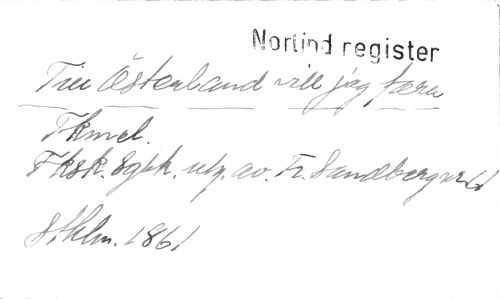 Norlind register
Till Österland vill jag fara
Fkmel.
Fksk. Sgbk. utg. av. Fr. Sandberg
Sthlm. 1861